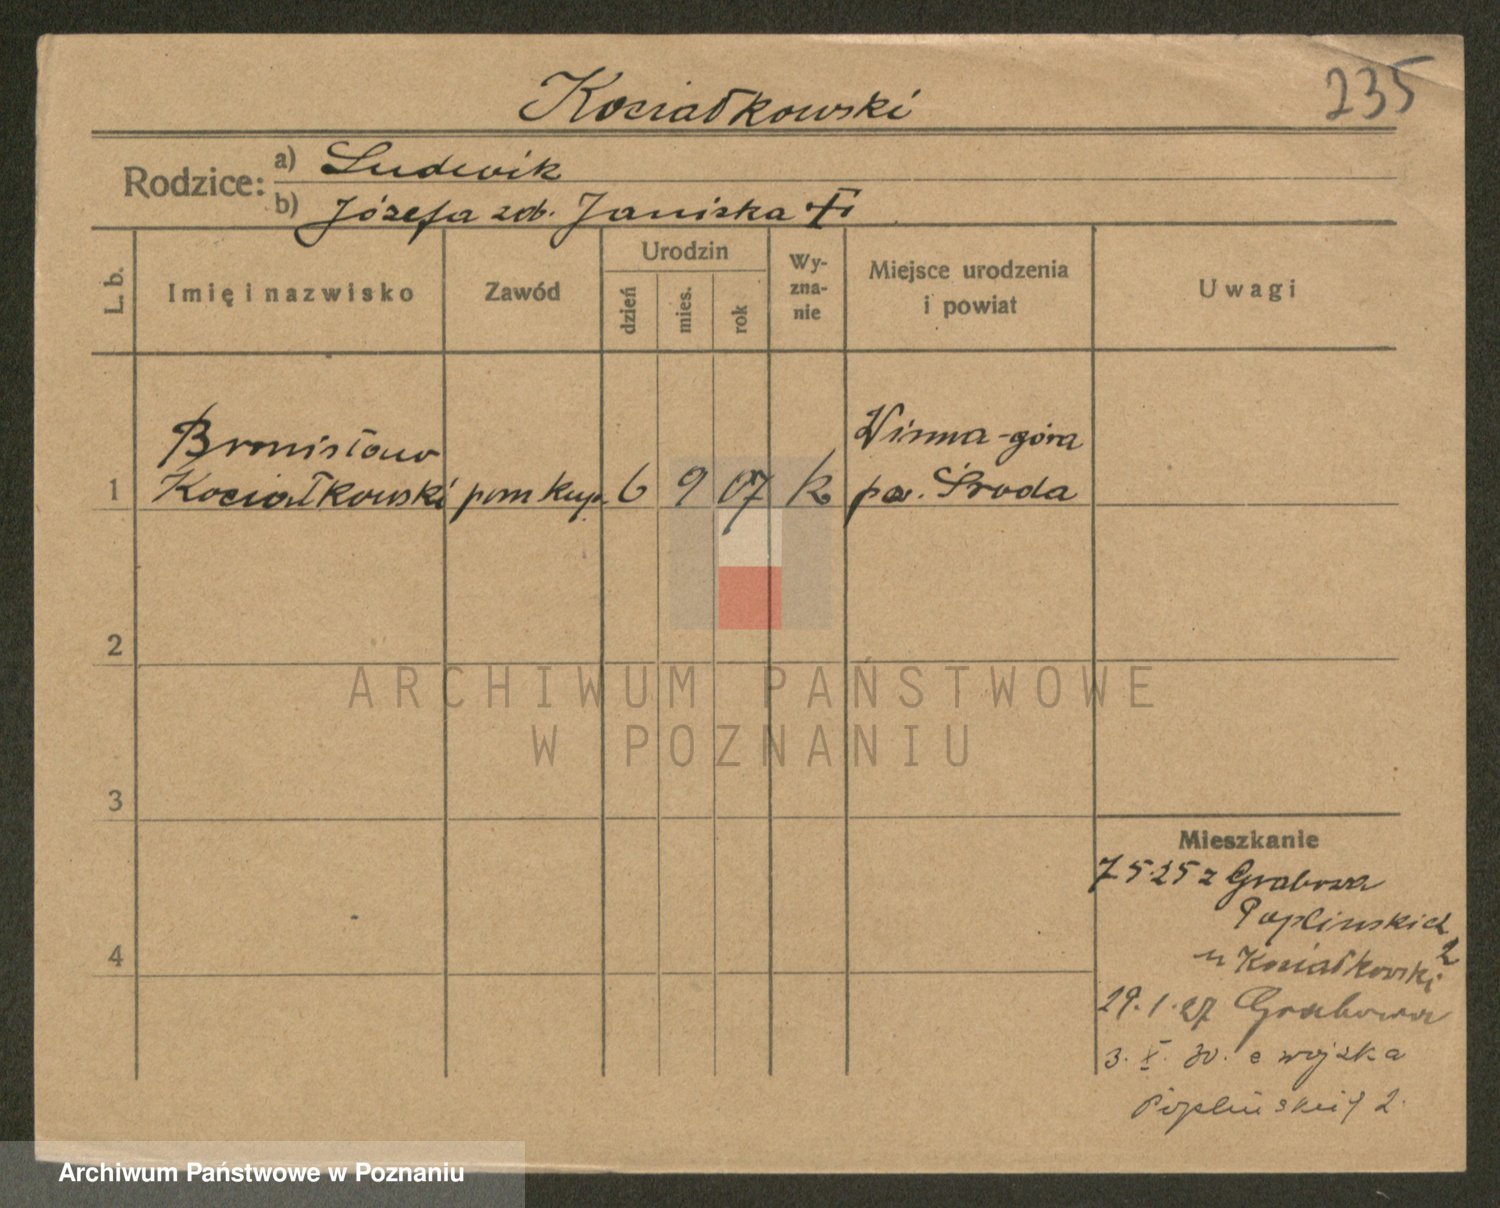 235
Kosiałkowski
Rodzice:
a) Ludwik
b) Józefa zd. Janiska
L. b.
Imię i nazwisko
Zawód
Urodzin
dzień
mies.
rok
Wy-
zna-
nie
Miejsce urodzenia
i powiat
Uwagi
Bronisław
Winna-góra
1 Kosiałkowski pom kup. 6 9 07 k pow. Środa
2
ARCHIWUM PAŃSTWOWE
W POZNANIU
3
Mieszkanie
7 5 25 z Grabowa
Poplinskich
2
u Kosiałkowski
4
29.1.27 Grabowa
3. X. 30. z wojska
Poplińskich 2.
Archiwum Państwowe w Poznaniu